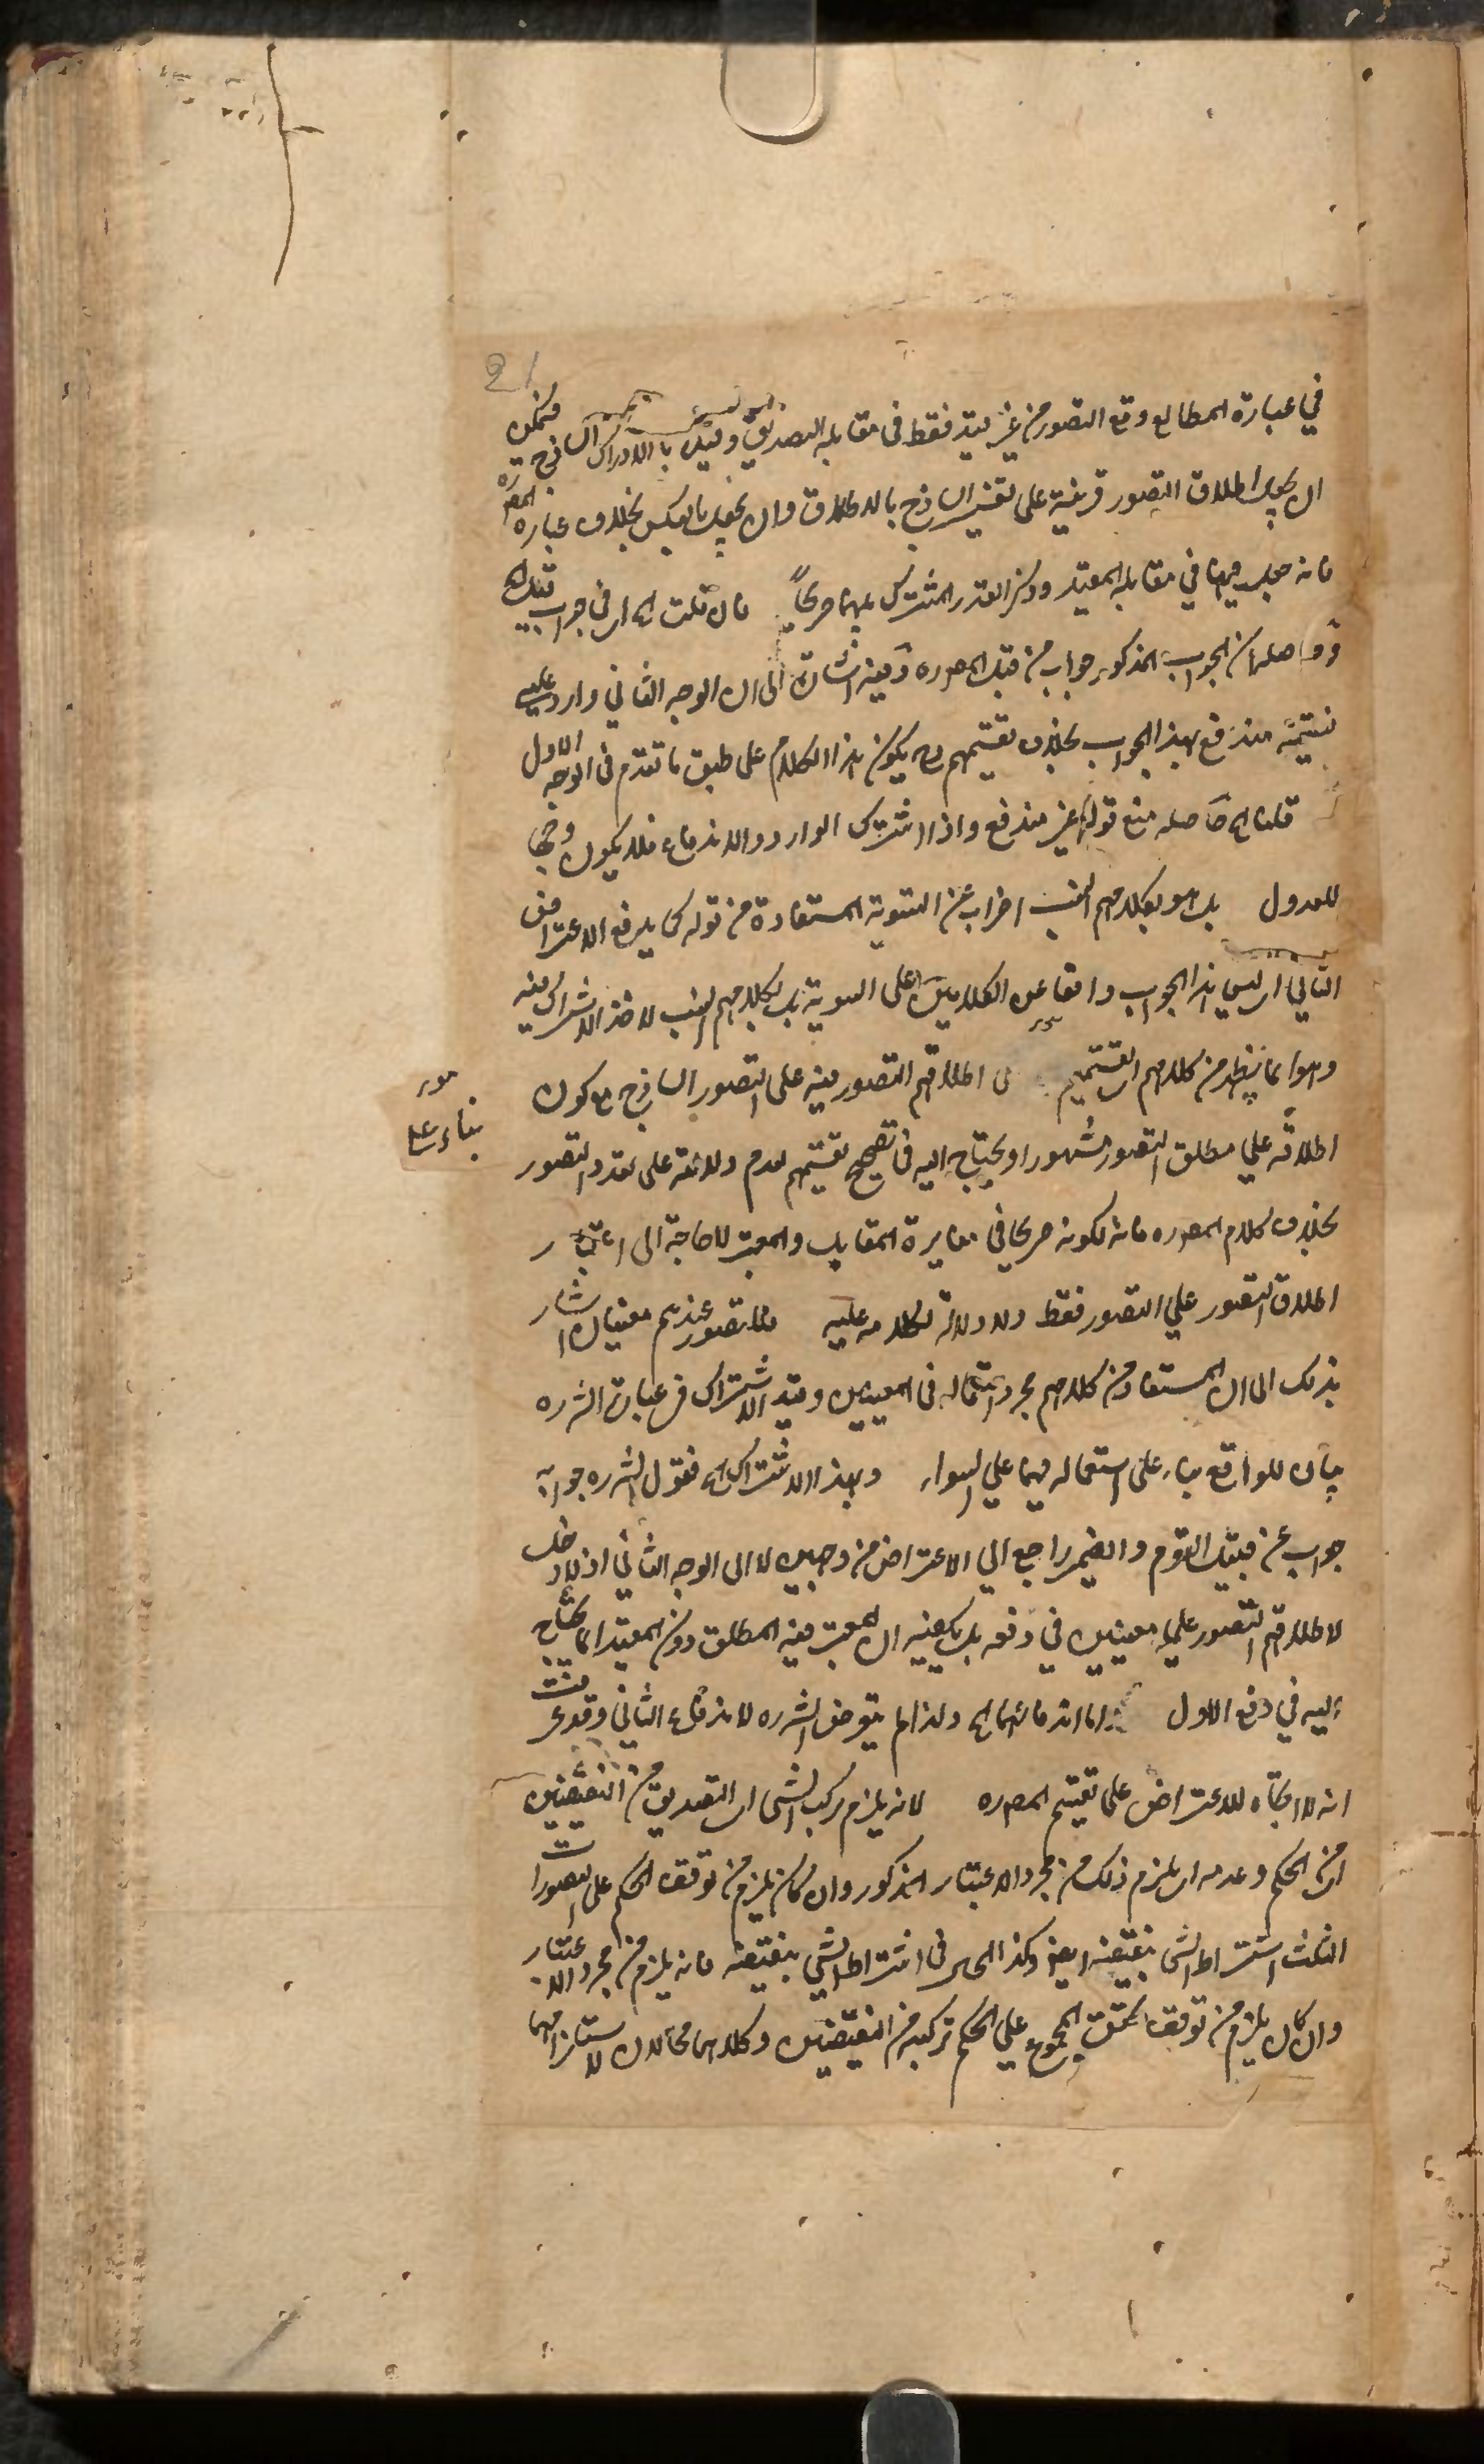 21
في عبارة المطالع وقع التصور من غير قيد فقط في مقابلة التصديق وقيد بالادراك الساذج فيمكن
ان يجعل اطلاق التصور قرينة على تفسير الساذج بالاطلاق وان يجعل بالعكس بخلاف عبارة المصره
فانه جعل فيها في مقابلة المقيد وذكر القدر المشترك بينهما صريحاً فان قلت الخ اى في جواب قيل الخ
وحاصله ان الجواب المذكور جواب من قبل المصره وفيه اشارة الى ان الوجه الثاني وارد عليه
فتقسيمه مندفع بهذا الجواب بخلاف تقسيمهم وح يكون هذا الكلام على طبق ما تقدم في الوجه الاول
قلنا الخ حاصله منع قوله غير مندفع واذا اشترك الوارد والاندفاع فلا يكون وجها
للعدول بل هو بكلامهم انسب اضراب عن التسوية المستفادة من قوله كما يدفع الاعتراض
الثاني اى ليس هذا الجواب دافعا عن الكلامين على السوية بل بكلامهم انسب لاخذ الاشتراك فيه
وهو انما يظهر من كلامهم اى تقسيمهم اطلاقهم التصور فيه على التصور الساذج مع كون
بناء على
اطلاقه على مطلق التصور مشهورا ويحتاج اليه في تصحيح تقسيمهم لعدم دلالته على تعدد التصور
بخلاف كلام المصره فانه لكونه صريحا في مغايرة المقابل والمعتبر لا حاجة الى اعتبار
اطلاق التصور على التصور فقط ولا دلالة لكلامه عليه فالتصور عندهم معنيان اشار
بذلك الى ان المستفاد من كلامهم مجرد استعماله في المعنيين وقيد الاشتراك في عبارة الشره
بيان للواقع بناء على استعماله فيهما على السواء وبهذا الاشتراك الخ فقول الشره جوابه
جواب عن قبل القوم والضمير راجع الى الاعتراض من وجهين لا الى الوجه الثاني اذ لا دخل
لاطلاقهم التصور على معنيين في دفعه بل يكفيه ان المعتبر فيه المطلق دون المقيد انما يحتاج
اليه في دفع الاول اما اندفاعهما الخ ولذا لم يتعرض الشره لاندفاع الثاني وقد عرفت
انه لا اتجاه للاعتراض على تقسيم المصره لانه يلزم تركب الشئ اى التصديق من النقيضين
اى من الحكم وعدمه اى يلزم ذلك من مجرد الاعتبار المذكور وان كان يلزم من توقف الحكم على التصورات
الثلث اشتراط الشئ بنقيضه ايضا وكذا الحال في اشتراط الشئ بنقيضه فانه يلزم من مجرد الاعتبار
وان كان يلزم من توقف تحقق المجموع على الحكم تركبه من النقيضين وكلاهما محالان لاستلزامهما